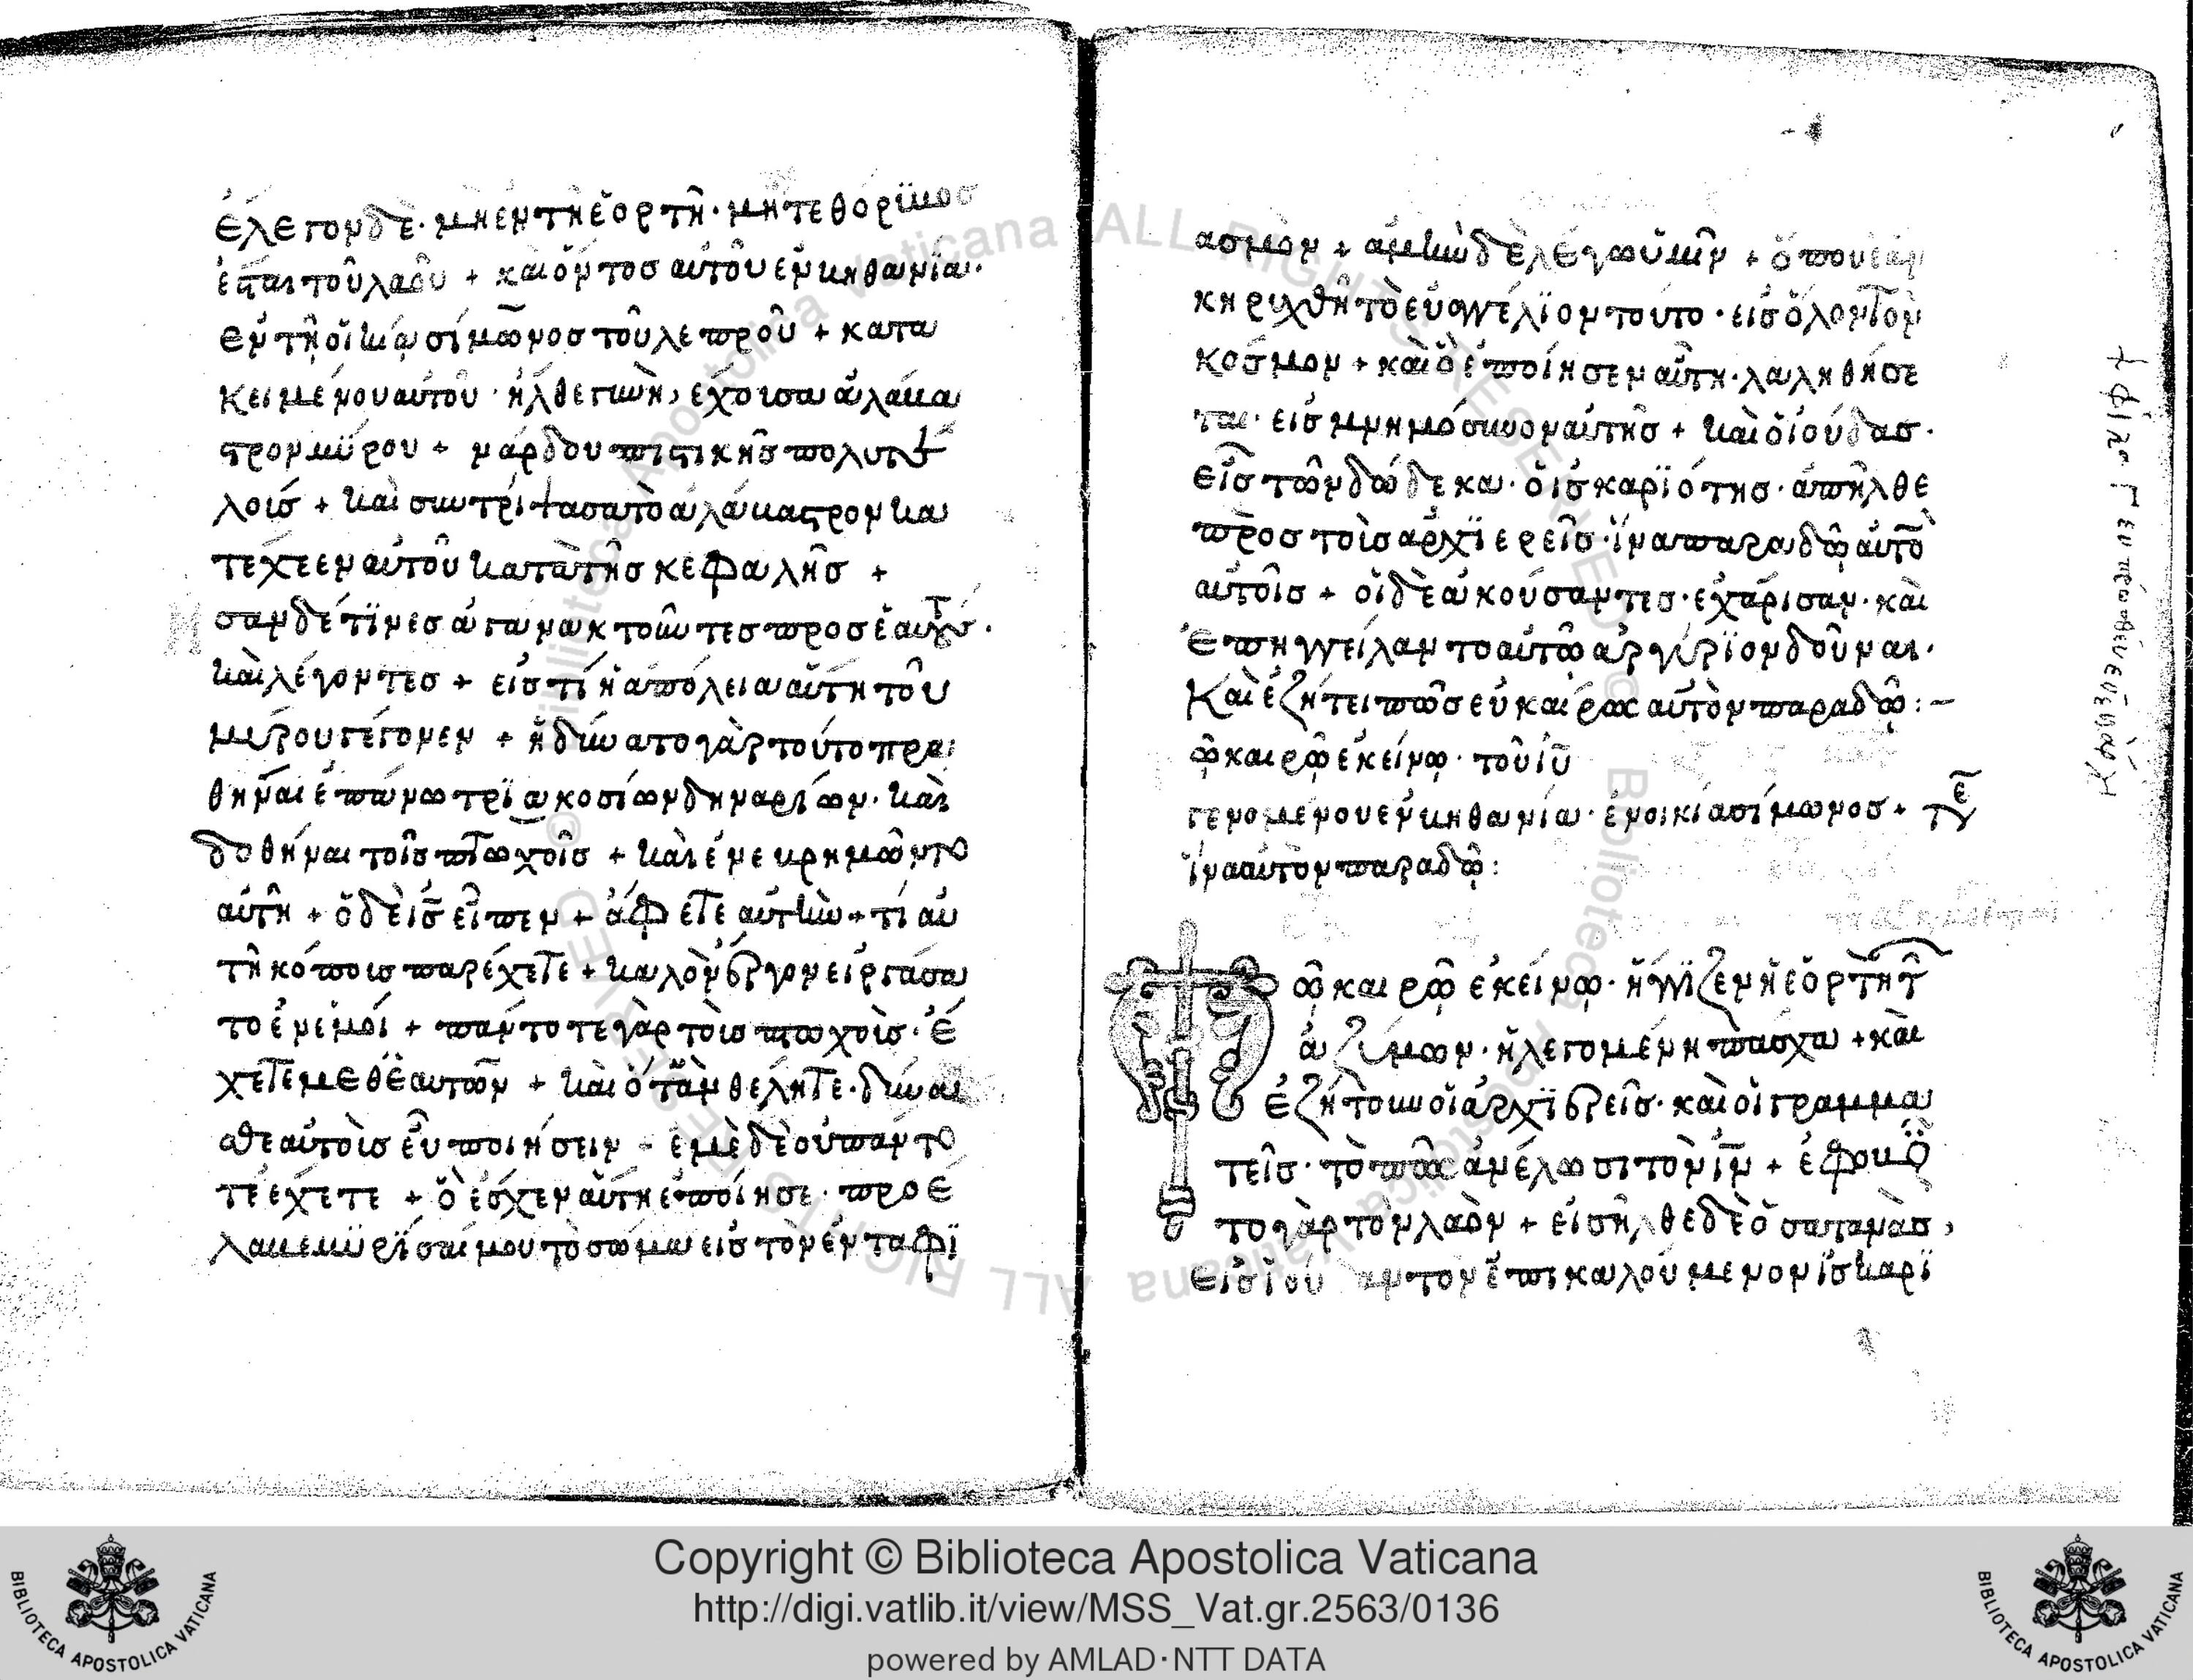 ἔλεγον δὲ· μὴ ἐν τῆ ἑορτῆ· μήτε θόρϊβος
ἔσται τοῦ λαοῦ + καὶ ὄντος αὐτοῦ ἐν βηθανία·
ἐν τῆ οἰκία σίμωνος τοῦ λεπροῦ + κατα
κειμένου αὐτοῦ· ἦλθε γυνὴ, ἔχουσα ἀλάβα
στρον μύρου + νάρδου πιστικῆς πολυτε
λοις + καὶ συντρίψασα τὸ ἀλάβαστρον κα
τέχεεν αὐτοῦ κατὰ τῆς κεφαλῆς +
σαν δέ τϊνες ἀγανακτοῦντες προς ἑαυτούς·
καὶ λέγοντες + εἰς τί ἡ ἀπόλεια αὕτη τοῦ
μύρου γέγονεν + ἠδύνατο γὰρ τούτο πρα
θῆναι ἐπάνω τρϊακοσίων δηναρίων· καὶ
δοθήναι τοῖς πτωχοῖς + καὶ ἐνεβριμῶντο
αὐτῆ + ὁ δὲ ἰς εἶπεν + ἄφετε αὐτὴν + τί αὐ
τῆ κόποις παρέχετε + καλὸν ἔργον εἰργάσα
το ἐν ἐμοί + πάντοτε γὰρ τοὺς πτωχοὺς· ἔ
χετε μεθ ἑαυτῶν + καὶ ὅταν θέλητε· δύνα
σθε αὐτοὺς εὖ ποιήσειν + ἐμὲ δὲ οὐ πάντο
τε ἔχετε + ὃ ἔσχεν αὕτη ἐποίησε· προέ
λαβε μϋρίσαι μου τὸ σώμα εἰς τὸν ἐνταφϊ
ασμον + ἀμὴν δὲ λέγω ὑμῖν + ὅπου ἐὰν
κηριχθῆ τὸ εὐαγγέλϊον τουτο· εἰς ὅλον τὸν
κόσμον + καὶ ὃ ἐποίησεν αὕτη· λαληθήσε
ται· εἰς μνημόσυνον αὐτῆς + καὶ ὁ ἰούδας·
εἷς τῶν δώδεκα· ὁ ἰσκαρϊότης· ἀπῆλθε
πρὸς τοὺς ἀρχϊερεῖς· ἵνα παραδῶ αὐτὸν
αὐτοῖς + οἱ δὲ ἀκούσαντες· ἐχάρισαν· καὶ
ἐπηγγείλαντο αὐτῶ ἀργύρϊον δοῦναι·
Καὶ ἐζήτει πῶς εὐκαίρως αὐτὸν παραδῶ :–
ῶ καιρῶ ἐκείνω· τοῦ ἰυ
γενομένου ἐν βηθανία· ἐν οικία σίμωνος +
ἵνα αὐτὸν παραδῶ:
Τῶ καιρῶ ἐκείνω· ἤγγϊζεν ἡ ἑορτὴ τῶν
ἀζύμων· ἡ λεγομένη πάσχα + καὶ
ἐζήτουν οἱ ἀρχϊερεῖς· καὶ οἱ γραμμα
τεῖς· τὸ πῶς ἀνέλωσι τὸν ἰν + ἐφοβοῦν
το γὰρ τὸν λαὸν + εἰσῆλθε δὲ ὁ σατανὰς,
εἰς ἰού αν τον ἐπικαλούμενον ἰσκαρϊ
Copyright © Biblioteca Apostolica Vaticana
http://digi.vatlib.it/view/MSS_Vat.gr.2563/0136
powered by AMLAD·NTT DATA
BIBLIOTECA APOSTOLICA VATICANA
BIBLIOTECA APOSTOLICA VATICANA